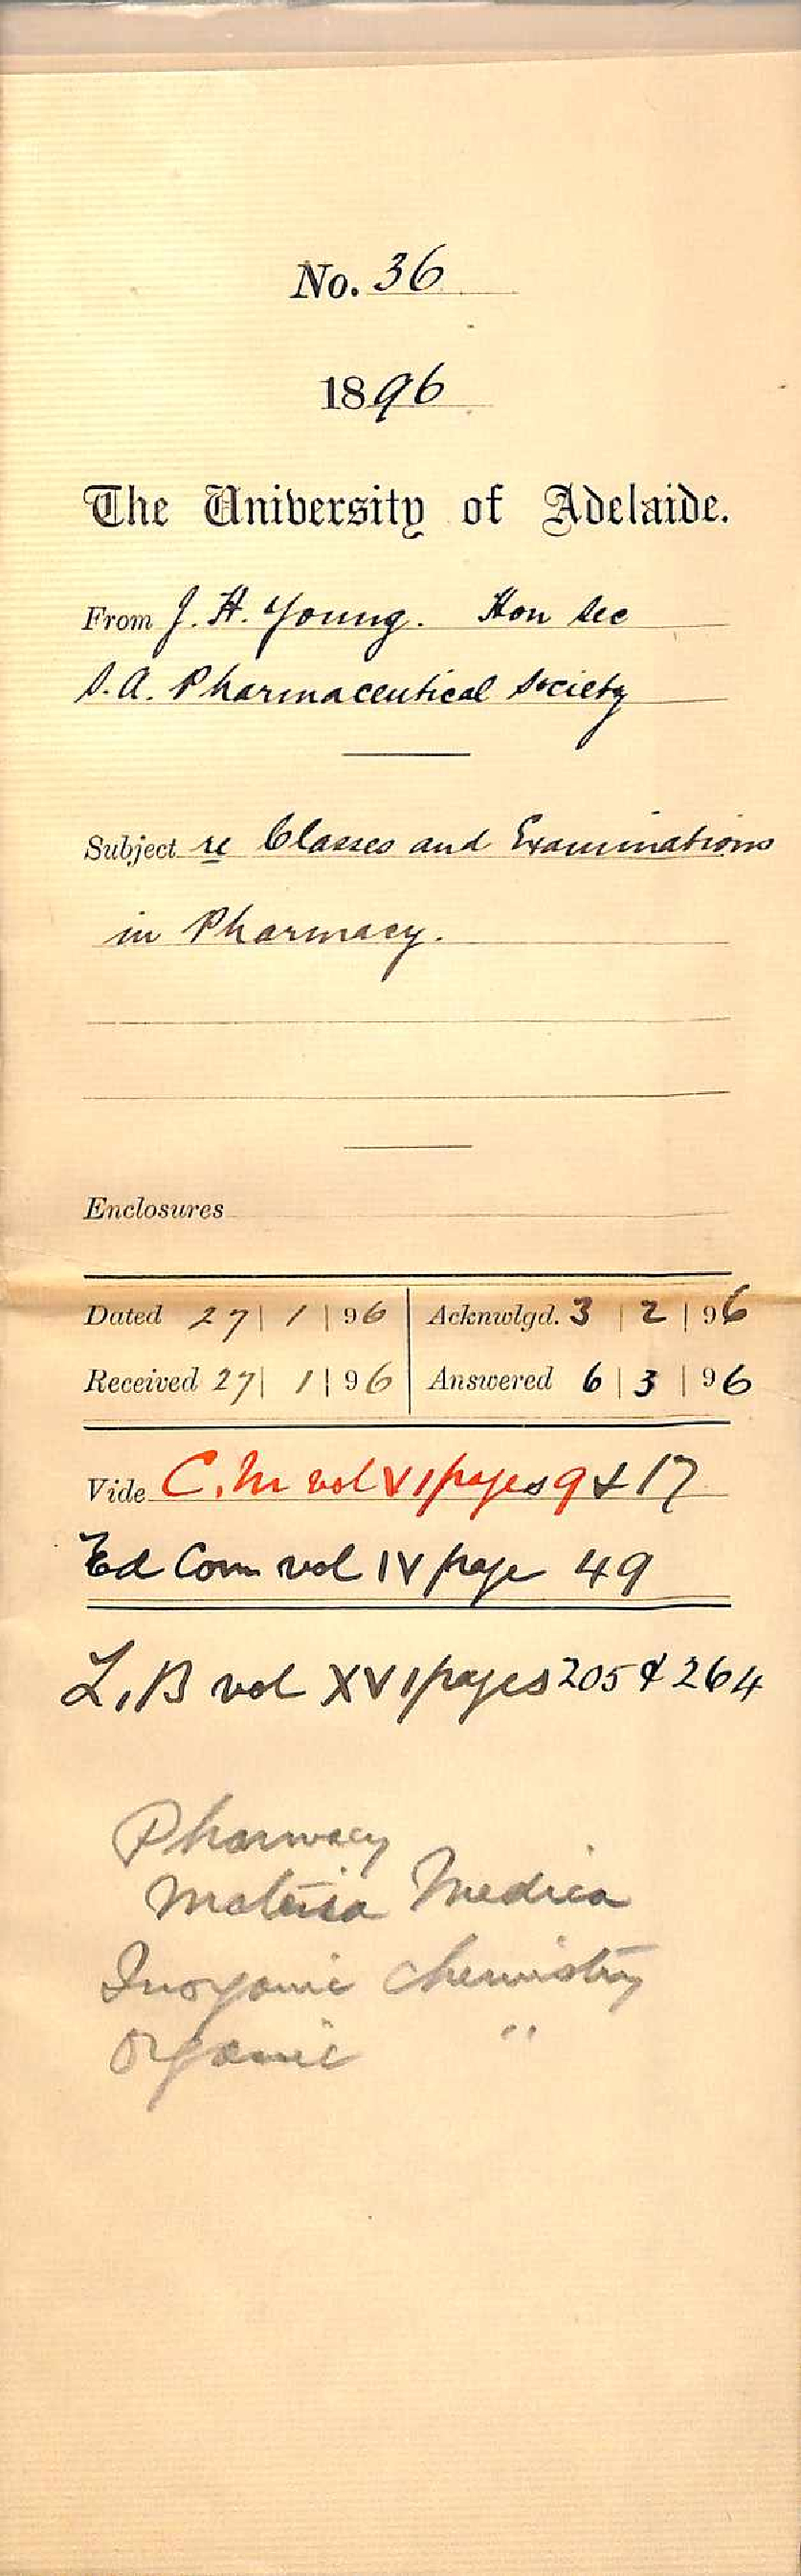 No. 36
1896
The University of Adelaide.
From J. H. Young. Hon Sec
S.A. Pharmaceutical Society
Subject re Classes and Examinations
in Pharmacy.
Enclosures
Dated 27 | 1 | 96 Acknwlgd. 3 | 2 | 96
Received 27 | 1 | 96 Answered 6 | 3 | 96
Vide C. M vol VI pages 9 & 17
Ed Com vol IV page 49
L, B vol XVI pages 205 & 264
Pharmacy
Materia Medica
Inorganic Chemistry
Organic "